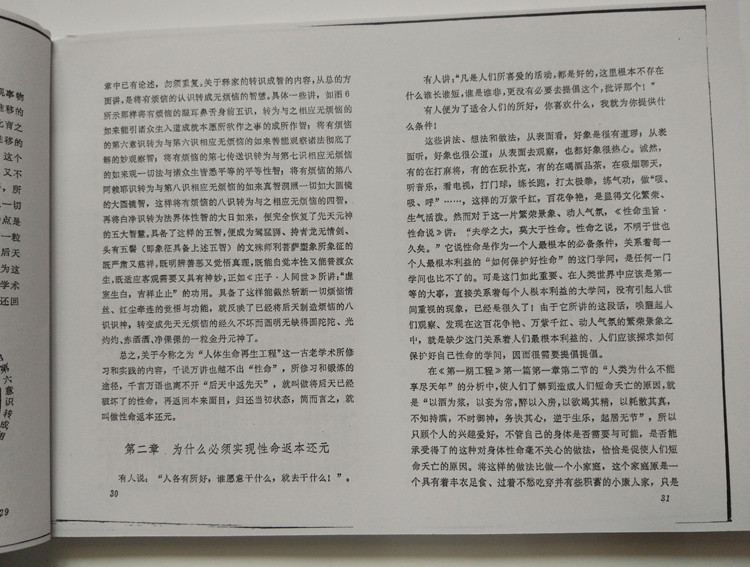 章中已有论述，勿须重复。关于释家的转识成智的内容，从总的方
面讲，是将有烦恼的认识转成无烦恼的智慧。具体一些讲，如图6
所示那样将有烦恼的眼耳鼻舌身前五识，转为与之相应无烦恼的
如来能引诸众生入道成就本愿所欲作之事的成所作智；将有烦恼
的第六意识转为与第六识相应无烦恼的如来善能观察诸法彻底了
解的妙观察智；将有烦恼的第七传送识转为与第七识相应无烦恼
的如来现一切法与诸众生皆悉平等的平等性智；将有烦恼的第八
阿赖耶识转为与第八识相应无烦恼的如来真智洞照一切如大圆镜
的大圆镜智，这样将有烦恼的八识转为与之相应无烦恼的四智，
再将白净识转为法界体性智的大日如来，便完全恢复了先天元神
的五大智慧。具备了这样的五智，便成为驾猛狮、持青龙元情剑、
头有五髻（即象征具备上述五智）的文殊师利菩萨塑象所象征的
既严肃又慈祥，既明辨善恶又觉悟真理，既能自觉本性又能普渡众
生，既适应客观需要又具有神妙，正如《庄子·人间世》所讲：“虚
室生白，吉祥止止”的功用。具备了这样能截然斩断一切烦恼情
丝、红尘牵连的觉悟与功能，就反映了已经将后天制造烦恼的八
识识神，转变成先天无烦恼的经久不坏而圆明无缺得面陀陀、光
灼灼、赤洒洒、净倮倮的一粒金丹元神了。
总之，关于今称之为“人体生命再生工程”这一古老学术所修
习和实践的内容，千说万讲也越不出“性命”，所修习和锻炼的
途径，千言万语也离不开“后天中返先天”，就叫做将后天已经
破坏了的性命，再返回本来面目，归还当初状态，简而言之，就
叫做性命返本还元。
第二章 为什么必须实现性命返本还元
有人说：“人各有所好，谁愿意干什么，就去干什么！”。
30
有人讲：“凡是人们所喜爱的活动，都是好的，这里根本不存在
什么谁长谁短，谁是谁非，更没有必要去提倡这个，批评那个！”
有人便为了适合人们的所好，你喜欢什么，我就为你提供什
么条件！
这些讲法、想法和做法，从表面看，好象是很有道理；从表
面听，好象也很公道；从表面去观察，也都好象很热心。诚然，
有的在打麻将，有的在玩扑克，有的在喝酒品茶，在吸烟聊天，
听音乐，看电视，打门球，练长跑，打太极拳，练气功，做“吸、
吸、呼”……，这样的万紫千红，百花争艳，是显得文化繁荣、
生气活泼。然而对于这一片繁荣景象、动人气氛，《性命圭旨·
性命说》讲：“夫学之大，莫大于性命。性命之说，不明于世也
久矣。”它说性命是作为一个人最根本的必备条件，关系着每一
个人最根本利益的“如何保护好性命”的这门学问，是任何一门
学问也比不了的。可是这门如此重要、在人类世界中应该是第一
等的大事，直接关系着每个人根本利益的大学问，没有引起人世
间重视的现象，已经是很久了！由于它所讲的这段话，唤醒起人
们观察、发现在这百花争艳、万紫千红、动人气氛的繁荣景象之
中，就是缺少这门关系着人们最根本利益的、人们应该探求如何
保护好自己性命的学问，因而很需要提倡提倡。
在《第一期工程》第一篇第一章第二节的“人类为什么不能
享尽天年”的分析中，使人们了解到造成人们短命夭亡的原因，就
是“以酒为浆，以妄为常，醉以入房，以欲竭其精，以耗散其真，
不知持满，不时御神，务快其心，逆于生乐，起居无节”，所以
只顾个人的兴趣爱好，不管自己的身体是否需要与可能，是否能
承受得了的这种对身体性命毫不关心的做法，恰恰是促使人们短
命夭亡的原因。将这样的做法比做一个小家庭，这个家庭原是一
个具有着丰衣足食、过着不愁吃穿并有些积蓄的小康人家，只是
31